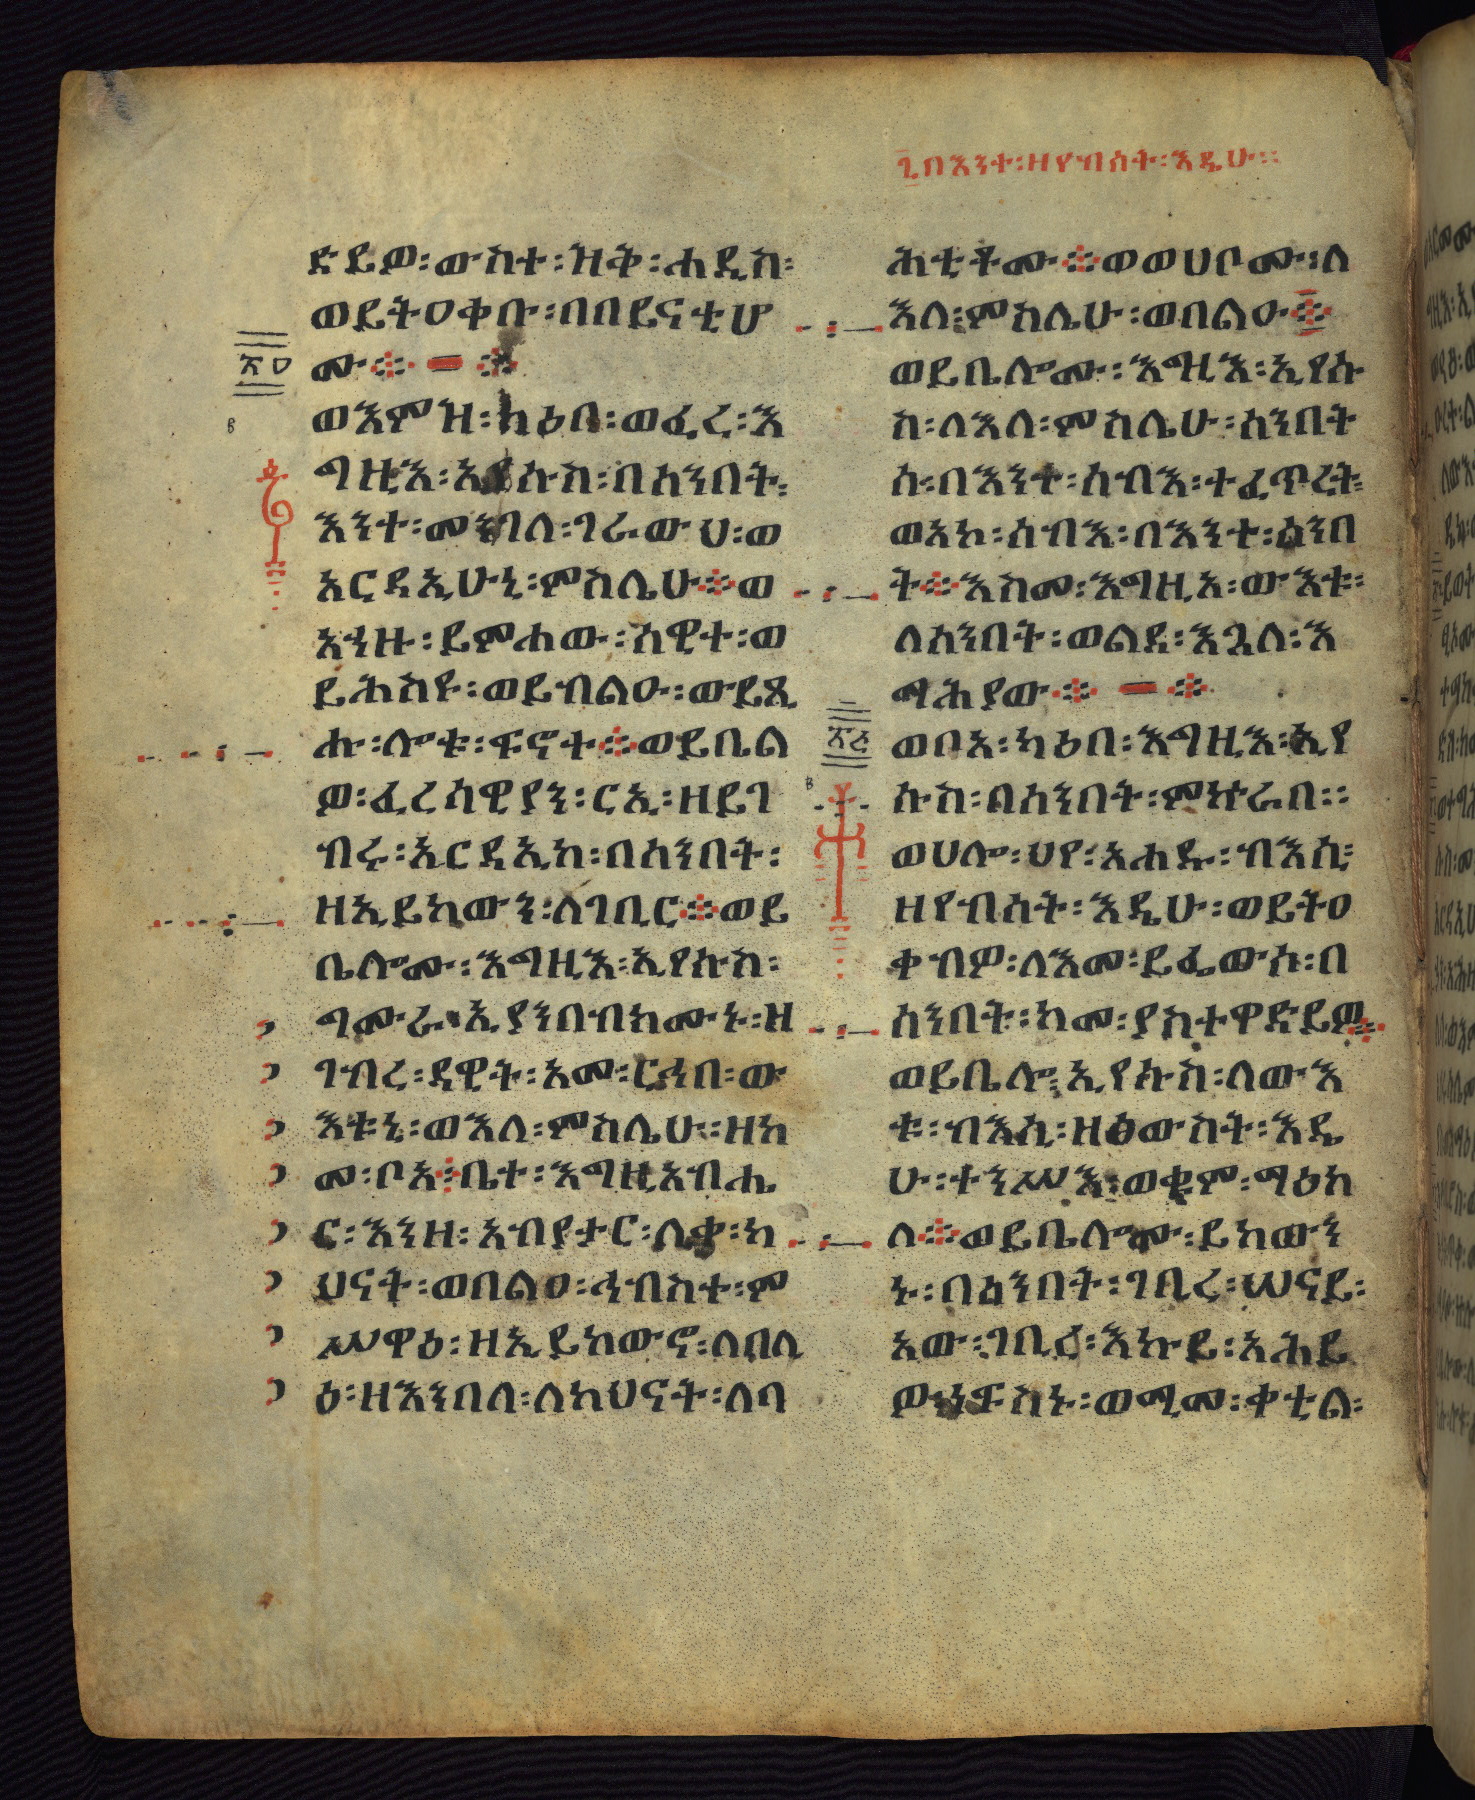 ፫በእንተ፡ዘየብሰት፡እዴሁ።
ድይዎ፡ውስተ፡ዝቅ፡ሐዲስ፡
ወይትዐቀቡ፡በበይናቲሆ
ሙ።
ወእምዝ፡ካዕበ፡ወፈረ፡እ
ግዚእ፡ኢየሱስ፡በሰንበት፡
እንተ፡መንገለ፡ገራውህ፡ወ
አርዳኢሁኒ፡ምስሌሁ።ወ
አኀዙ፡ይምሐው፡ሰዊተ፡ወ
ይሕስዩ፡ወይብልዑ፡ወይጺ
ሑ፡ሎቱ፡ፍኖተ።ወይቤል
ዎ፡ፈሪሳዊያን፡ርኢ፡ዘይገ
ብሩ፡አርዳኢከ፡በሰንበት፡
ዘኢይከውን፡ለገቢር።ወይ
ቤሎሙ፡እግዚእ፡ኢየሱስ፡
ግሙራ፡ኢያንበብክሙኑ፡ዘ
ገብረ፡ዳዊት፡አመ፡ርኅበ፡ው
እቱኒ፡ወእለ፡ምስሌሁ።ዘከ
መ፡ቦአ፡ቤተ፡እግዚአብሔ
ር፡እንዘ፡አብያታር፡ሊቀ፡ካ
ህናት፡ወበልዐ፡ኅብስተ፡መ
ሥዋዕ፡ዘኢይከውኖ፡ለበሊ
ዕ፡ዘእንበለ፡ለካህናት፡ለባ
ሕቲቶሙ።ወወሀቦሙ፡ለ
እለ፡ምስሌሁ፡ወበልዑ።
ወይቤሎሙ፡እግዚእ፡ኢየሱ
ስ፡ለእለ፡ምስሌሁ፡ሰንበት
ሰ፡በእንተ፡ሰብእ፡ተፈጥረት፡
ወአኮ፡ሰብእ፡በእንተ፡ሰንበ
ት።እስመ፡እግዚአ፡ውእቱ፡
ለሰንበት፡ወልደ፡እጓለ፡እ
ማሕያው።
ወቦአ፡ካዕበ፡እግዚእ፡ኢየ
ሱስ፡በሰንበት፡ምኵራበ።
ወሀሎ፡ህየ፡አሐዱ፡ብእሲ፡
ዘየብሰት፡እዴሁ፡ወይትዐ
ቀብዎ፡ለእመ፡ይፌውሶ፡በ
ሰንበት፡ከመ፡ያስተዋድይዎ።
ወይቤሎ፡ኢየሱስ፡ለውእ
ቱ፡ብእሲ፡ዘፅውስት፡እዴ
ሁ፡ተንሥእ፡ወቁም፡ማዕከ
ለ።ወይቤሎሙ፡ይከውን
ኑ፡በሰንበት፡ገቢረ፡ሠናይ፡
አው፡ገቢረ፡እኩይ፡አሕይ
ዎ፡ነፍስኑ፡ወሚመ፡ቀቲል፡